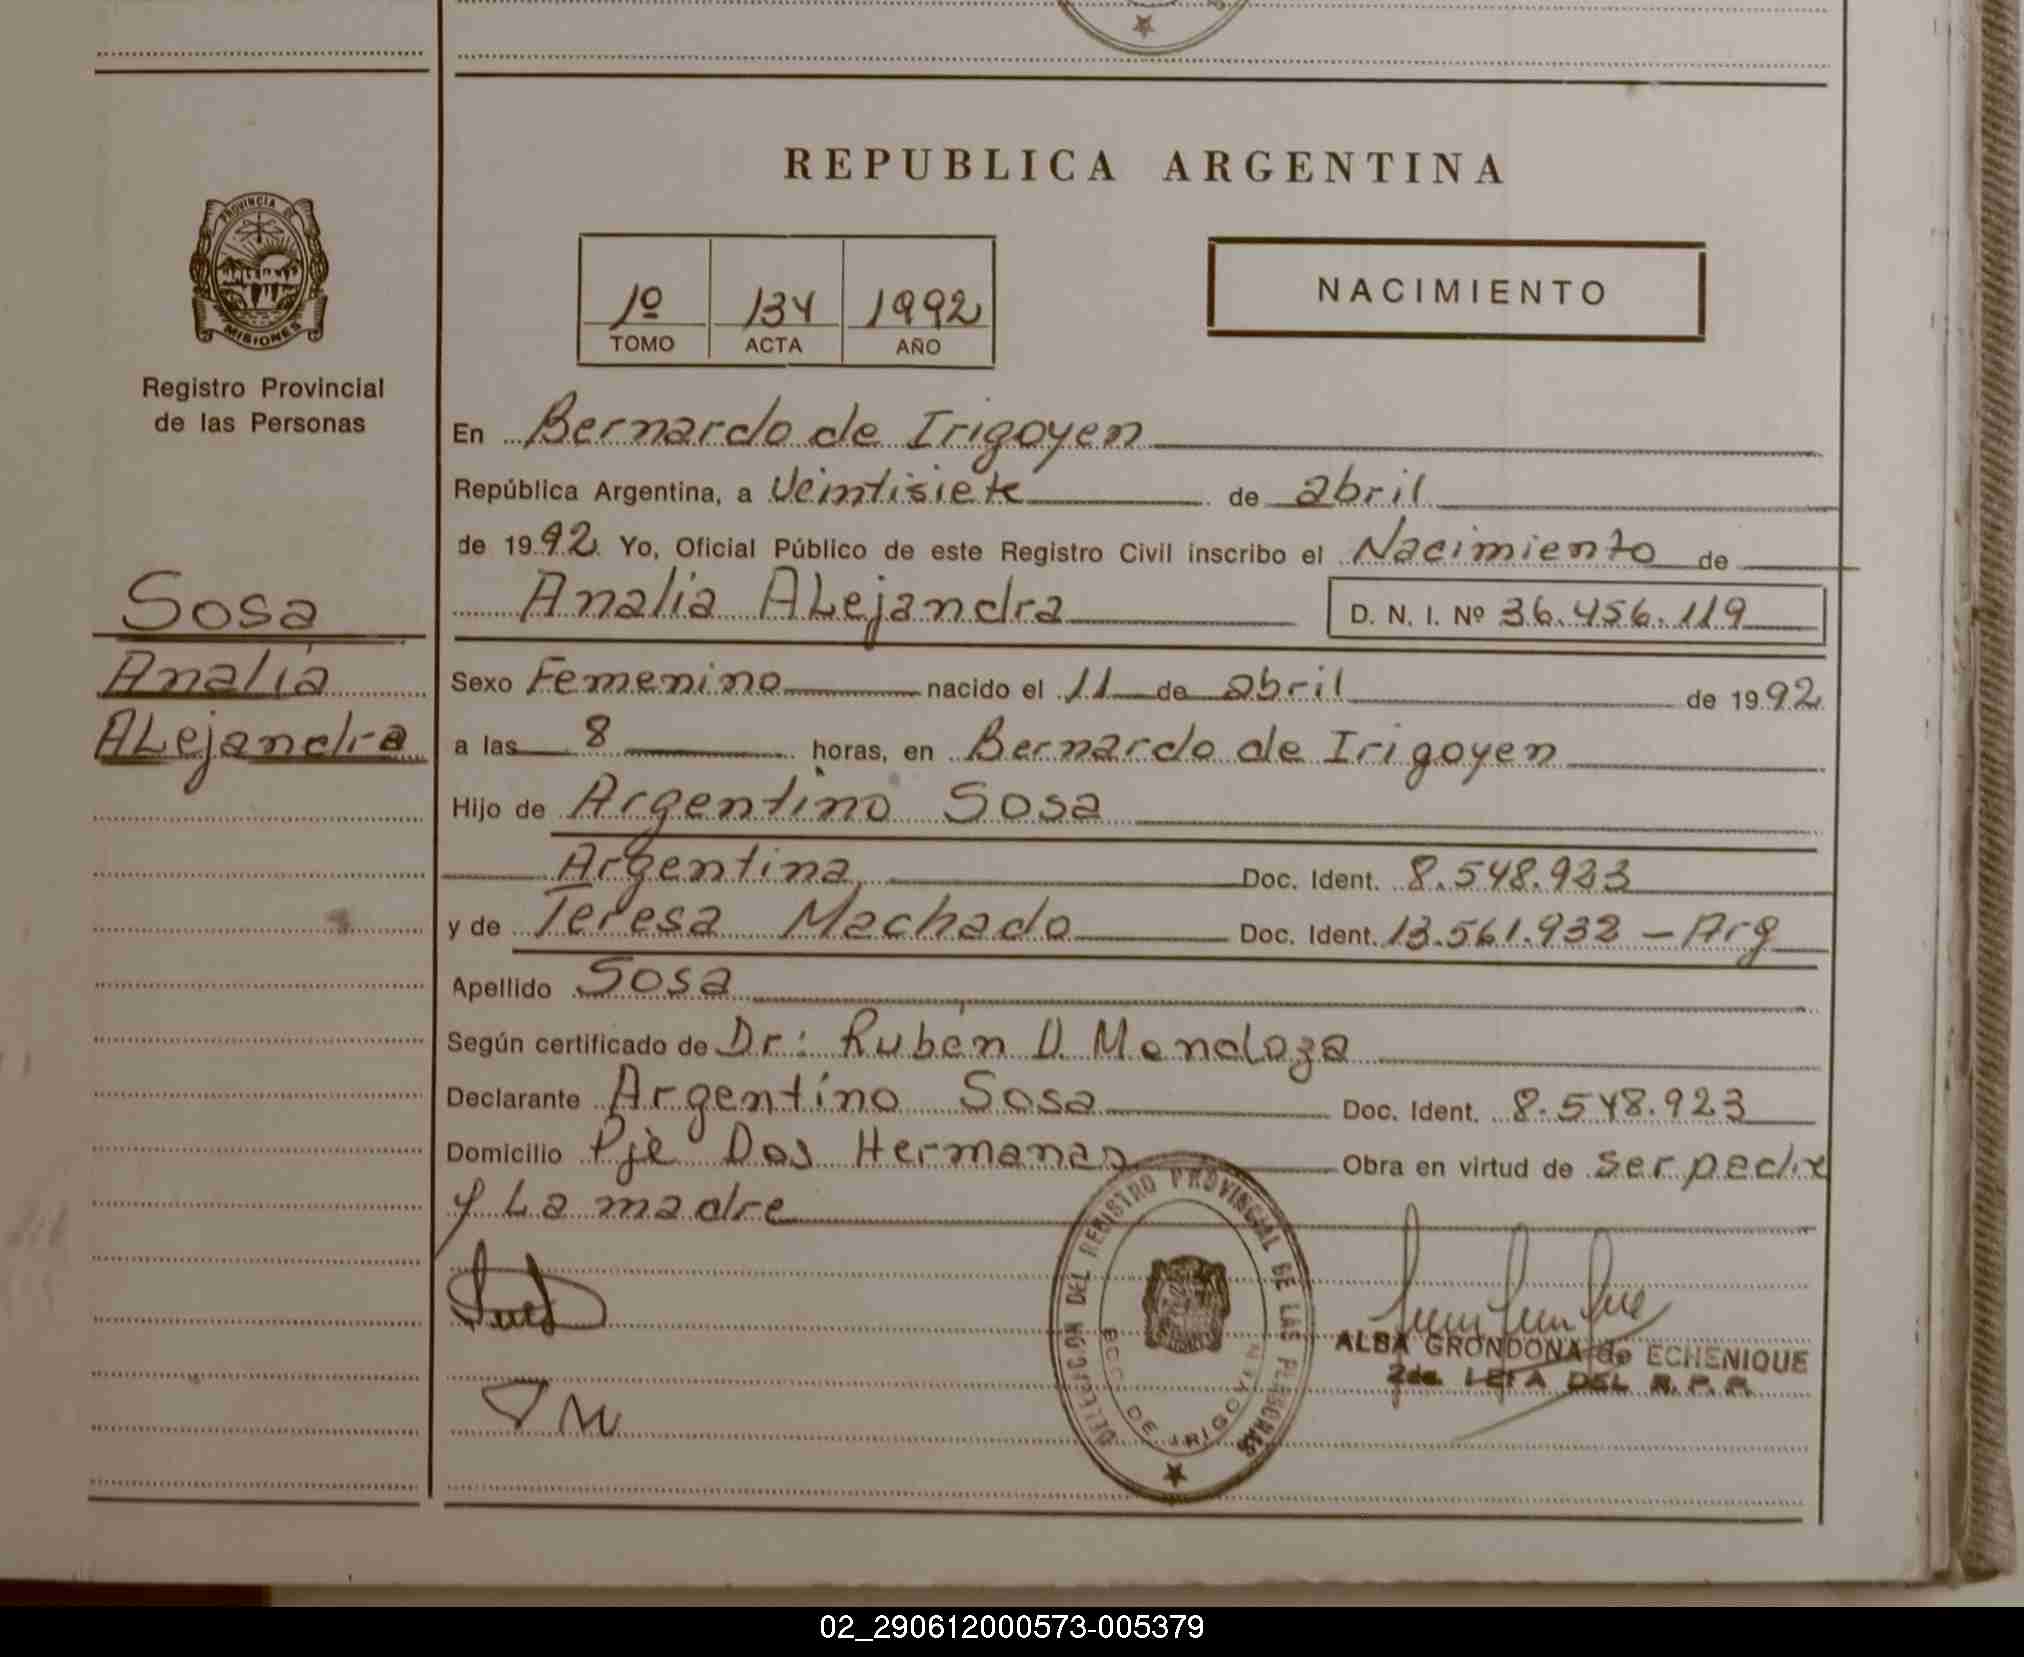 REPUBLICA ARGENTINA
PROVINCIA DE
MISIONES
Registro Provincial
de las Personas
1º 134 1992
TOMO ACTA AÑO
NACIMIENTO
Sosa
Analia
ALejandra
En Bernardo de Irigoyen
República Argentina, a Veintisiete de abril
de 1992. Yo, Oficial Público de este Registro Civil inscribo el Nacimiento de
Analia ALejandra D. N. I. Nº 36.456.119
Sexo Femenino nacido el 11 de abril de 1992
a las 8 horas, en Bernardo de Irigoyen
Hijo de Argentino Sosa
Argentina Doc. Ident. 8.548.923
y de Teresa Machado Doc. Ident. 13.561.932 - Arg
Apellido Sosa
Según certificado de Dr: Rubén D. Mendoza
Declarante Argentino Sosa Doc. Ident. 8.548.923
Domicilio Pje Dos Hermanas Obra en virtud de ser padre
y La madre
DELEGACION DEL REGISTRO PROVINCIAL DE LAS PERSONAS
BDO. DE IRIGOYEN
ALBA GRONDONA de ECHENIQUE
2da. DEL R. P. P.
02_290612000573-005379